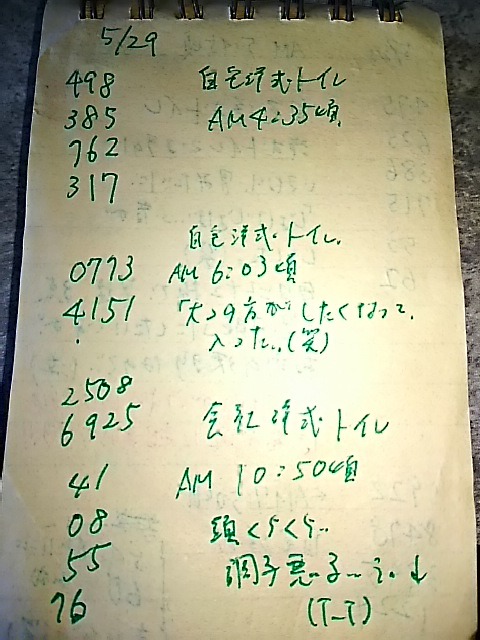 5/29
498 自宅洋式・トイレ
385 AM4:35頃
762
317
自宅洋式・トイレ.
0793 AM 6:03頃
4151 「大」の方がしたくなって、
入った..(笑)
2508
6925 会社洋式・トイレ
41 AM 10:50頃
08 頭くらくら..
55 調子悪..る...
76 (T_T)